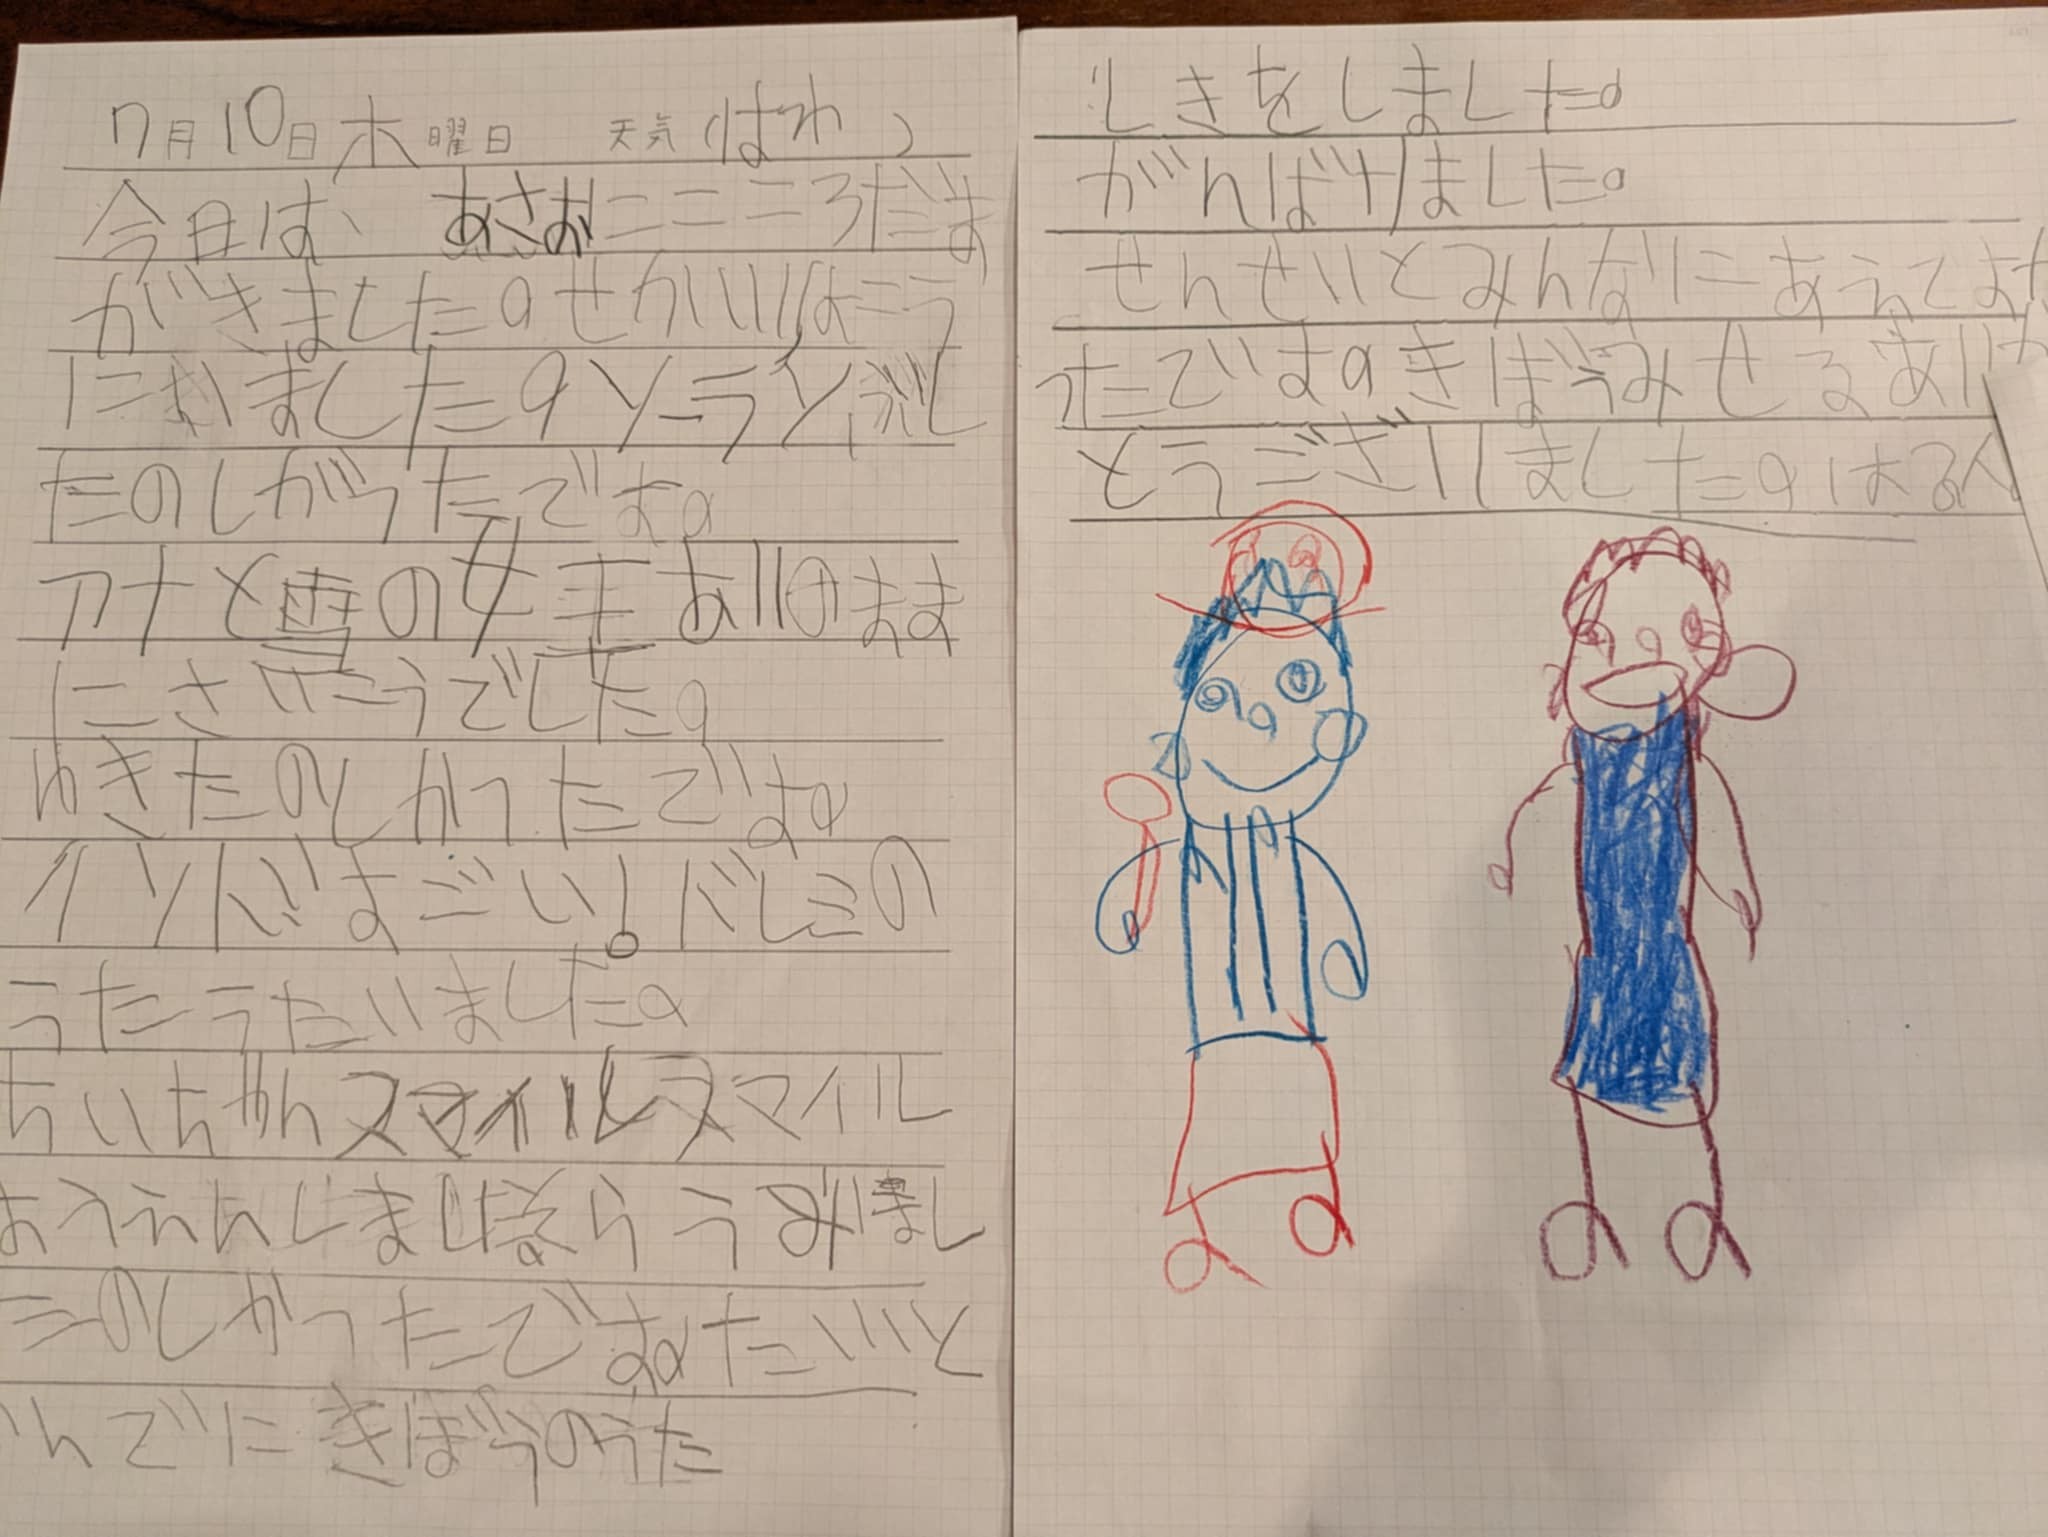 7月10日木曜日 天気(はれ)
今日は、あさおにこころだま
がきました。せかいはこう
にかいました。ソーラン、ぶし
たのしがったです。
アナと雪の女王ありのまま
にさいこうでした。
ゆきたのしかったです。
インドすごい!ドレミの
うたうたいました。
ちいちゃんスマイルスマイル
おうえんしましたそらうみほし
たのしかったです。たいいく
かんでにきぼうのうた
しきをしました。
がんばりました。
せんせいとみんなにあえてよか
ったです。きぼうみせるあり
とうございました。はる